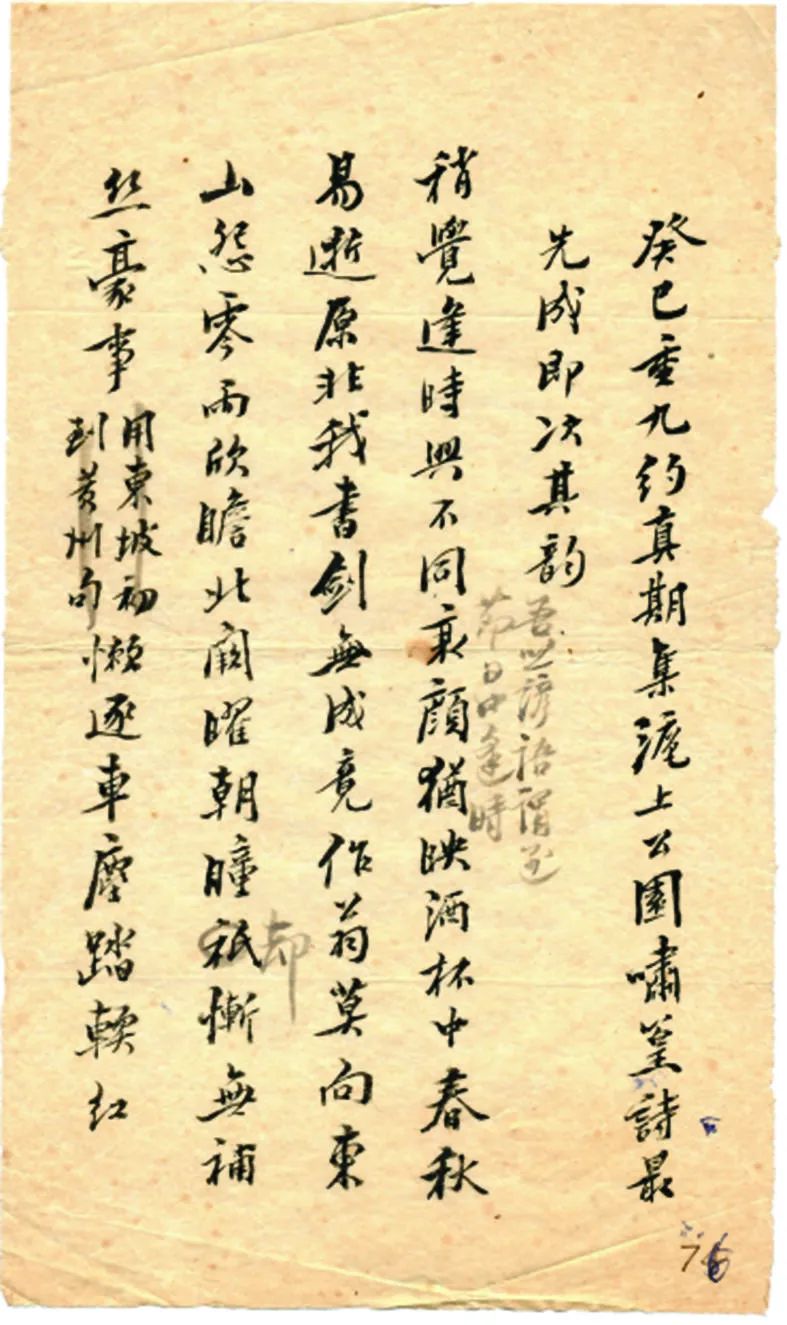 癸巳重九約真期集滬上公園嘯篁詩最
先成即次其韵
吾世諺語謂至
節日中逢時
稍覺逢時興不同衰顏猶映酒杯中春秋
易逝原非我書劍無成竟作翁莫向東
山怨零雨欣瞻北闕曜朝曈祇慚無補
却
絲豪事
用東坡初
到黃州句
懶逐車塵踏輭紅
76